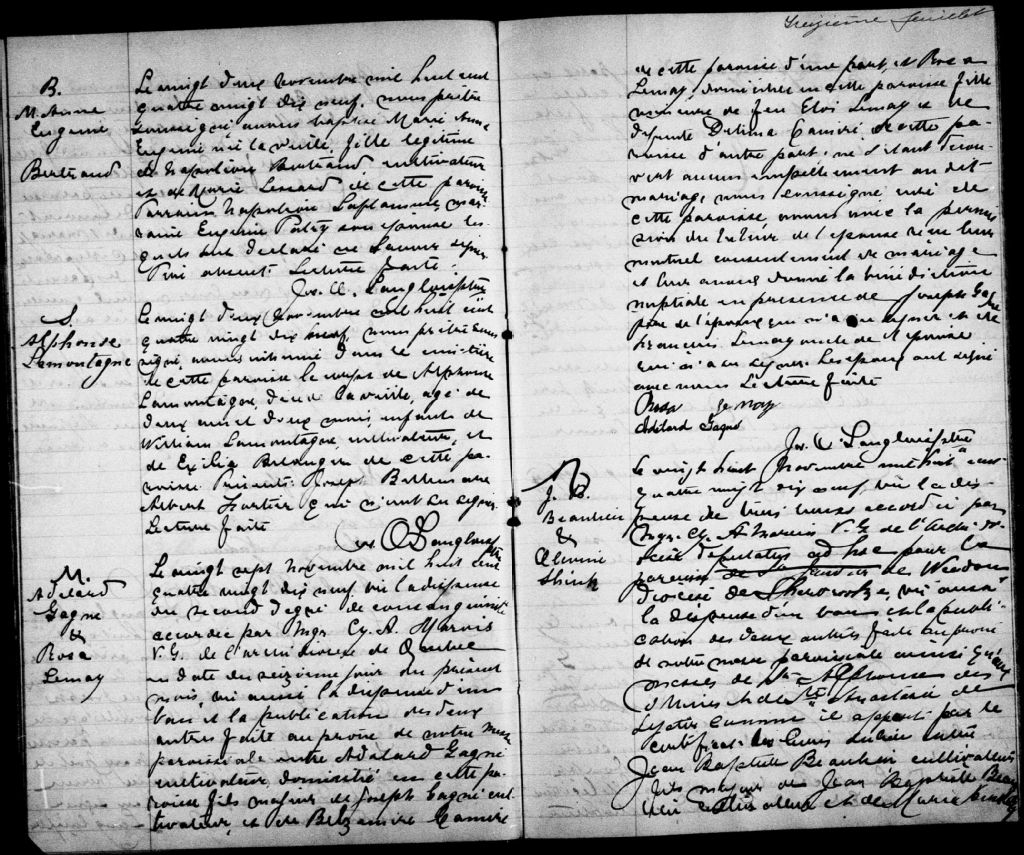 Treizième feuillet
B.
M. Anne
Eugenie
Bertrand
Le vingt deux novembre mil huit cent
quatre vingt dix neuf, nous prêtre
soussigné avons baptisé Marie Anne
Eugenie née la veille, fille légitime
de Napoléon Bertrand, cultivateur
et de Marie Lessard de cette paroisse
Parrain Napoléon Laplante, mar
raine Eugenie son épouse les
quels ont déclaré ne savoir signer
Père absent. Lecture faite.
Jos. O. Langlois ptre
S.
Alphonse
Lamontagne
Le vingt deux novembre mil huit cent
quatre vingt dix neuf, nous prêtre sous
signé, avons inhumé dans le cimetière
de cette paroisse le corps de Alphonse
Lamontagne, décédé la veille, agé de
deux ans et deux mois, enfant de
William Lamontagne cultivateur, et
de Exilia Belanger de cette pa
roisse. Présents: Joseph
Albert Fortier qui n'ont su signer.
Lecture faite
Jos O Langlois ptre
M.
Adelard
Gagné
&
Rosa
Lemay
Le vingt sept novembre mil huit cent
quatre vingt dix neuf, vu la dispense
du second degré de consanguinité
accordée par Mgr. Cy. A. Marois
V. G. de l'archidiocèse de Quebec
en date du seizième jour du présent
mois, vu aussi la dispense d'un
ban et la publication des deux
autres faite au prône de notre messe
paroissiale entre Adelard Gagné
cultivateur, domicilié en cette pa-
roisse fils majeur de Joseph Gagné cul
tivateur, et de Belzemire Camiré
de cette paroisse d'une part, et Rosa
Lemay, domiciliée en cette paroisse fille
mineure de feu Eloi Lemay et de
défunte Delima Camiré de cette pa-
roisse d'autre part; ne s'étant trou-
vé aucun empêchement au dit
mariage, nous soussigné curé de
cette paroisse avons avec la permis
sion du tuteur de l'épouse reçu leur
mutuel consentement de mariage
et leur avons donné la bénédiction
nuptiale en présence de Joseph Gagné
père de l'époux qui n'a su signer et de
François Lemay oncle de l'épouse
qui n'a su signer. Les époux ont signé
avec nous. Lecture faite
Rosa Lemay
Adélard Gagné
Jos. O Langlois ptre
M.
J. B.
Beaulieu
&
Le vingt huit Novembre mil huit cent
quatre vingt dix neuf, vu la dis-
pense de deux bans accordée par
Mgr. Cy. A. Marois V. G. de l'Archi-dio
cèse deputatus ad hoc pour la
paroisse de Weedon
diocèse de Sherbrooke, vu aussi
la dispense d'un ban et la publi
cation des deux autres faite au prône
de notre messe paroissiale ainsi qu'aux
messes de St Alphonse des
Mines et de Ste Anastasie de
Lyster comme il appert par le
certificat des curés entre
Jean Baptiste Beaulieu cultivateur
fils majeur de Jean Baptiste Beau
lieu cultivateur et de Marie